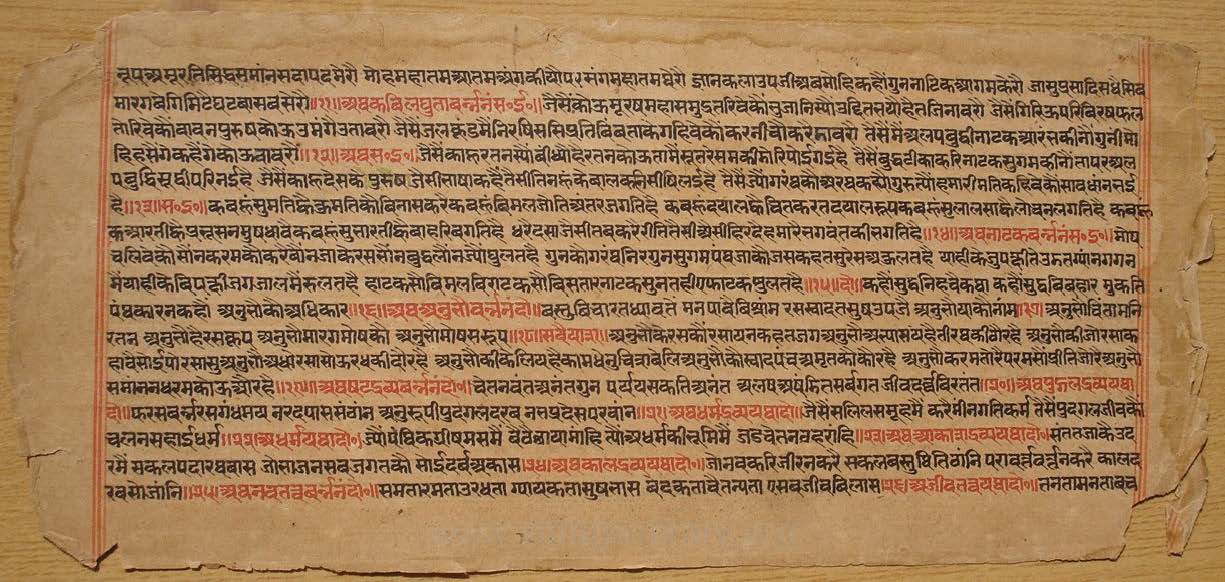 रूपअमूरतिसिद्धसमांनसदापदमेरौ मोहमहातमआतमअंगकीयौपरसंगमहातमघेरौ ज्ञानकलाउपजीअबमोहिकहौंगुननाटिकआगमकेरौ जासुप्रसादिसधैसिव
मारगवेगिमिटैघटबासबसेरौ॥११॥अथकविलघुतावर्न्ननंस॰इ॰॥जैसैंकोऊमूरषमहासमुद्रतरिवेकौंभुजानिस्यौंउद्दितभयौहैतजिनावरौ जैसैगिरिऊपरिविरषफल
तोरिवेकौंबावनपुरुषकोऊउमंगैउतावरौ जैसैंजलकुंडमैंनिरषिससिप्रतिबिंबताकेगहिवेकौंकरनीचोकरैडाबरौ तैसैंमैंअलपबुद्धीनाटकआरंभकीनौंगुनीमो
हिहसैंगेकहैंगेकोऊबावरौ॥१२॥अथस॰इ॰॥जैसैंकाहूरतनस्यौंबींध्यौहैरतनकोऊतामैंसूतरेसमकीडोरिपोईगईहै तैसैंबुद्धटीकाकरिनाटकसुगमकीनौंतापरिअल
पबुद्धिसूधीपरिनईहै जैसैंकाहूदेसकेपुरुषजैसीभाषाकहैंतैसीतिनहूंकेबालकनिसीषिलईहै तैसैंज्यौंगरंथकौअरथकह्यौगुरुत्यौंहमारीमतिकहिवेकौंसावधांनभई
है॥१३॥स॰इ॰॥कबहूंसुमतिव्हैकुमतिकौबिनासकरैकबहूंबिमलजोतिअंतरजगतिहै कबहूंदयालव्हैचितकरतदयालरूपकबहूंसुलालसाव्हैलोचनलगतिहै कबहूं
कआरतीव्हैप्रभुसनमुषआवैकबहूंसुभारतीव्हैबाहरिबगतिहै धरैदसाजैसीतबकरैरीतितैसीअैसीहिरदैहमारैभगवंतकीभगतिहै॥१४॥अथनाटकवर्न्ननंस॰इ॰॥मोष
चलिवेकौसौंनकरमकौकरैबौंनजाकेरसभौंनबुद्धलौंनज्यौंघुलतहै गुनकोगरंथनिरगुनसुगमपंथजाकौजसकहतसुरेसअकुलतहै याहीकेजुपछीतेउडतग्यांनगगन
मैंयाहीकेविपछीजगजालमैंरुलतहै हाटकसौविमलविराटकसौविसतारनाटकसुनतहीएफाटकषुलतहै॥१५॥दो॥कहौंसुद्धनिहचैकथा कहौंसुद्धबिबहार मुकति
पंथकारनकहौं अनुभौकौअधिकार॥१६॥अथअनुभौवर्न्ननंदो॥वस्तुविचारतध्यावतैं मनपावैविश्रांम रसस्वादतसुषउपजै अनुभौयाकौनांम॥१७॥अनुभौचिंतामनि
रतन अनुभौहैरसकूप अनुभौमारगमोषकौ अनुभौमोषसरूप॥१८॥सवैया३१॥अनुभौकेरसकौंरसायनकहतजगअनुभौअभ्यासयहैतीरथकीठौरहै अनुभौकीजोरसाक
हावैसोईपोरसासुअनुभौअधोरसासौंऊरधकीदौरहै अनुभौकीकेलियहैकामधेनुचित्राबेलिअनुभौकौस्वादपंचअमृतकौकौरहै अनुभौकरमतोरैपरमसौंप्रीतिजोरैअनुभौ
समाननधरमकोऊऔरहै॥१९॥अथषटद्रव्यवर्न्ननंदो॰॥चेतनवंतअनंतगुन पर्ययसकतिअनंत अलषअषंडितसर्वगत जीवदर्वविरतंत॥२०॥अथपुद्गलद्रव्ययथा
दो॥फरसबर्नरसगंधमय नरदपाससंठांन अनुरूपीपुदगलदरब नभप्रदेसपरवांन॥२१॥अथधर्मद्रव्ययथादो॥जैसैंसलिलसमूहमैं करैमीनगतिकर्म तैसैंपुदगलजीवकौं
चलनसहाईधर्म॥२२॥अधर्मयथादो॰॥ज्यौंपंथिकग्रीषमसमैं बैठैछायामांहि त्यौंअधर्मकीभूमिमैं जडचेतनठहरांहि॥२३॥अथआकाशद्रव्ययथादो॰॥संततजाकेउद
रमैं सकलपदारथबास जोभाजनसबजगतकौ सोईदर्वअकास॥२४॥अथकालद्रव्ययथादो॰॥जोनवकरिजीरनकरै सकलवस्तुथितिठांनि परावर्त्तवर्त्तनकरै कालद
रबसोजांनि॥२५॥अथनवतत्त्ववर्न्ननंदो॰॥समतारमताउरधता ग्यायकतासुषभास बेदकताचैतन्यता एसबजीवबिलास॥२६॥अजीवतत्त्वयथादो॰॥तनतामनताबच